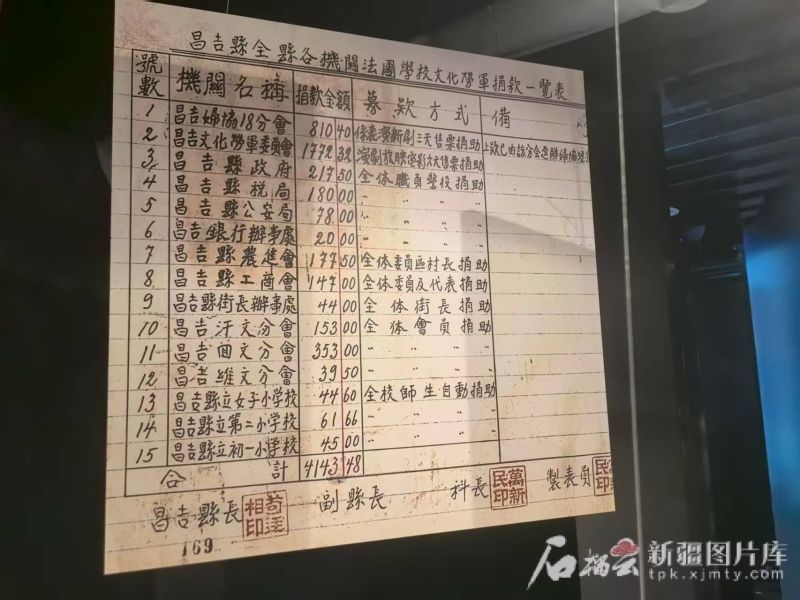 昌吉縣全縣各機關法團學校文化勞軍捐款一覽表
號數 機關名稱 捐款金額 募款方式 備
1 昌吉婦協18分會 810 40 係表演新劇三天售票捐助
2 昌吉文化勞軍委員會 1772 32 演劇放映電影六天售票捐助
3 昌吉縣政府 217 50 全体職員警役捐助
4 昌吉縣稅局 180 00 〃 〃 〃
5 昌吉縣公安局 78 00 〃 〃 〃
6 昌吉銀行辦事處 20 00 〃 〃 〃
7 昌吉縣農進會 177 50 全体委員區村長捐助
8 昌吉縣工商會 147 00 全体委員及代表捐助
9 昌吉縣街長辦事處 44 00 全体街長捐助
10 昌吉汗文分會 153 00 全体會員捐助
11 昌吉回文分會 353 00 〃 〃 〃
12 昌吉維文分會 39 50 〃 〃 〃
13 昌吉縣立女子小學校 44 60 全校師生自動捐助
14 昌吉縣立第二小學校 61 66 〃 〃 〃
15 昌吉縣立初一小學校 45 00 〃 〃 〃
合計 4143 48
昌吉縣長 相印 副縣長 科長 萬新民印 製表員
169
石榴云 新疆图片库
tpk.xjmty.com